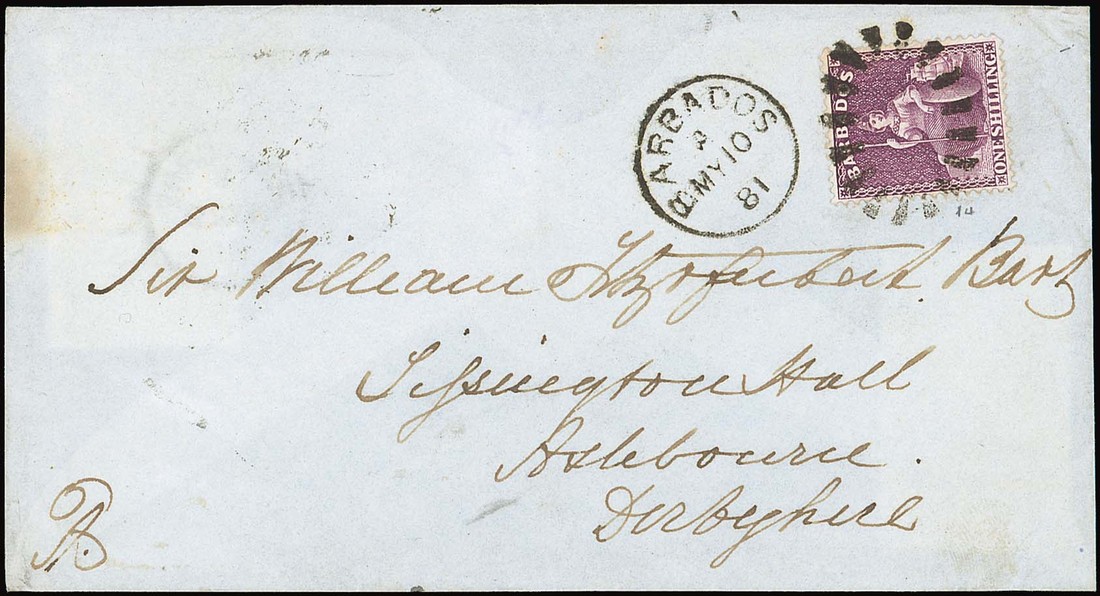 BARBADOS
MY 10
81
BARBADOS
ONE SHILLING
14
Sir William FitzHerbert Bart
Tissington Hall
Ashbourne.
Derbyshire